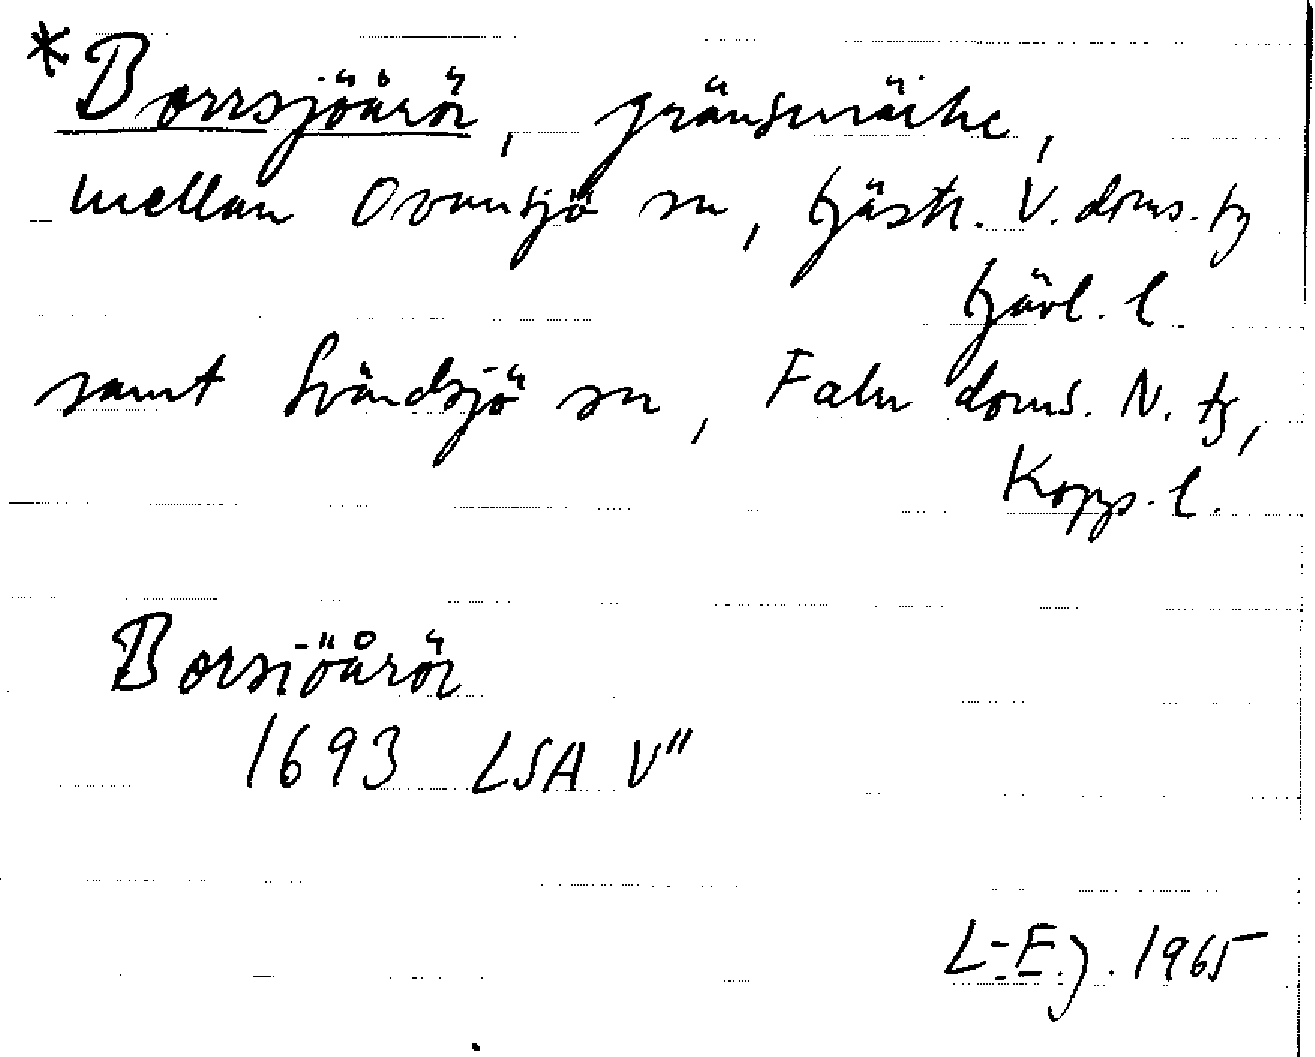 *Borrsjöårör, gränsmärke,
mellan Ovansjö sn, Gästr. V. doms. tg
Gävl. l.
samt Svärdsjö sn, Falu doms. N. tg,
Kopp. l.
Borsiöårör
1693 LSA V"
L-E.J. 1965